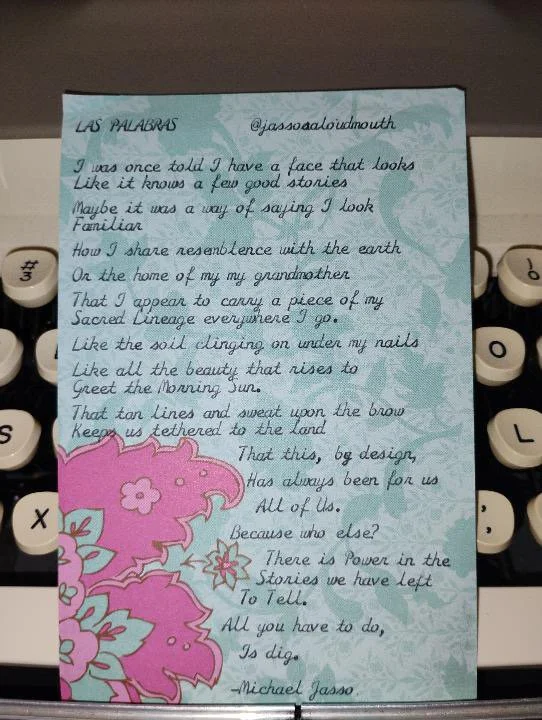 LAS PALABRAS @jassosaloudmouth
I was once told I have a face that looks
Like it knows a few good stories
Maybe it was a way of saying I look
Familiar
How I share resemblence with the earth
Or the home of my my grandmother
That I appear to carry a piece of my
Sacred Lineage everywhere I go.
Like the soil clinging on under my nails
Like all the beauty that rises to
Greet the Morning Sun.
That tan lines and sweat upon the brow
Keeps us tethered to the land
That this, by design,
Has always been for us
All of Us.
Because who else?
There is Power in the
Stories we have left
To Tell.
All you have to do,
Is dig.
-Michael Jasso
#
3
O
S
L
X